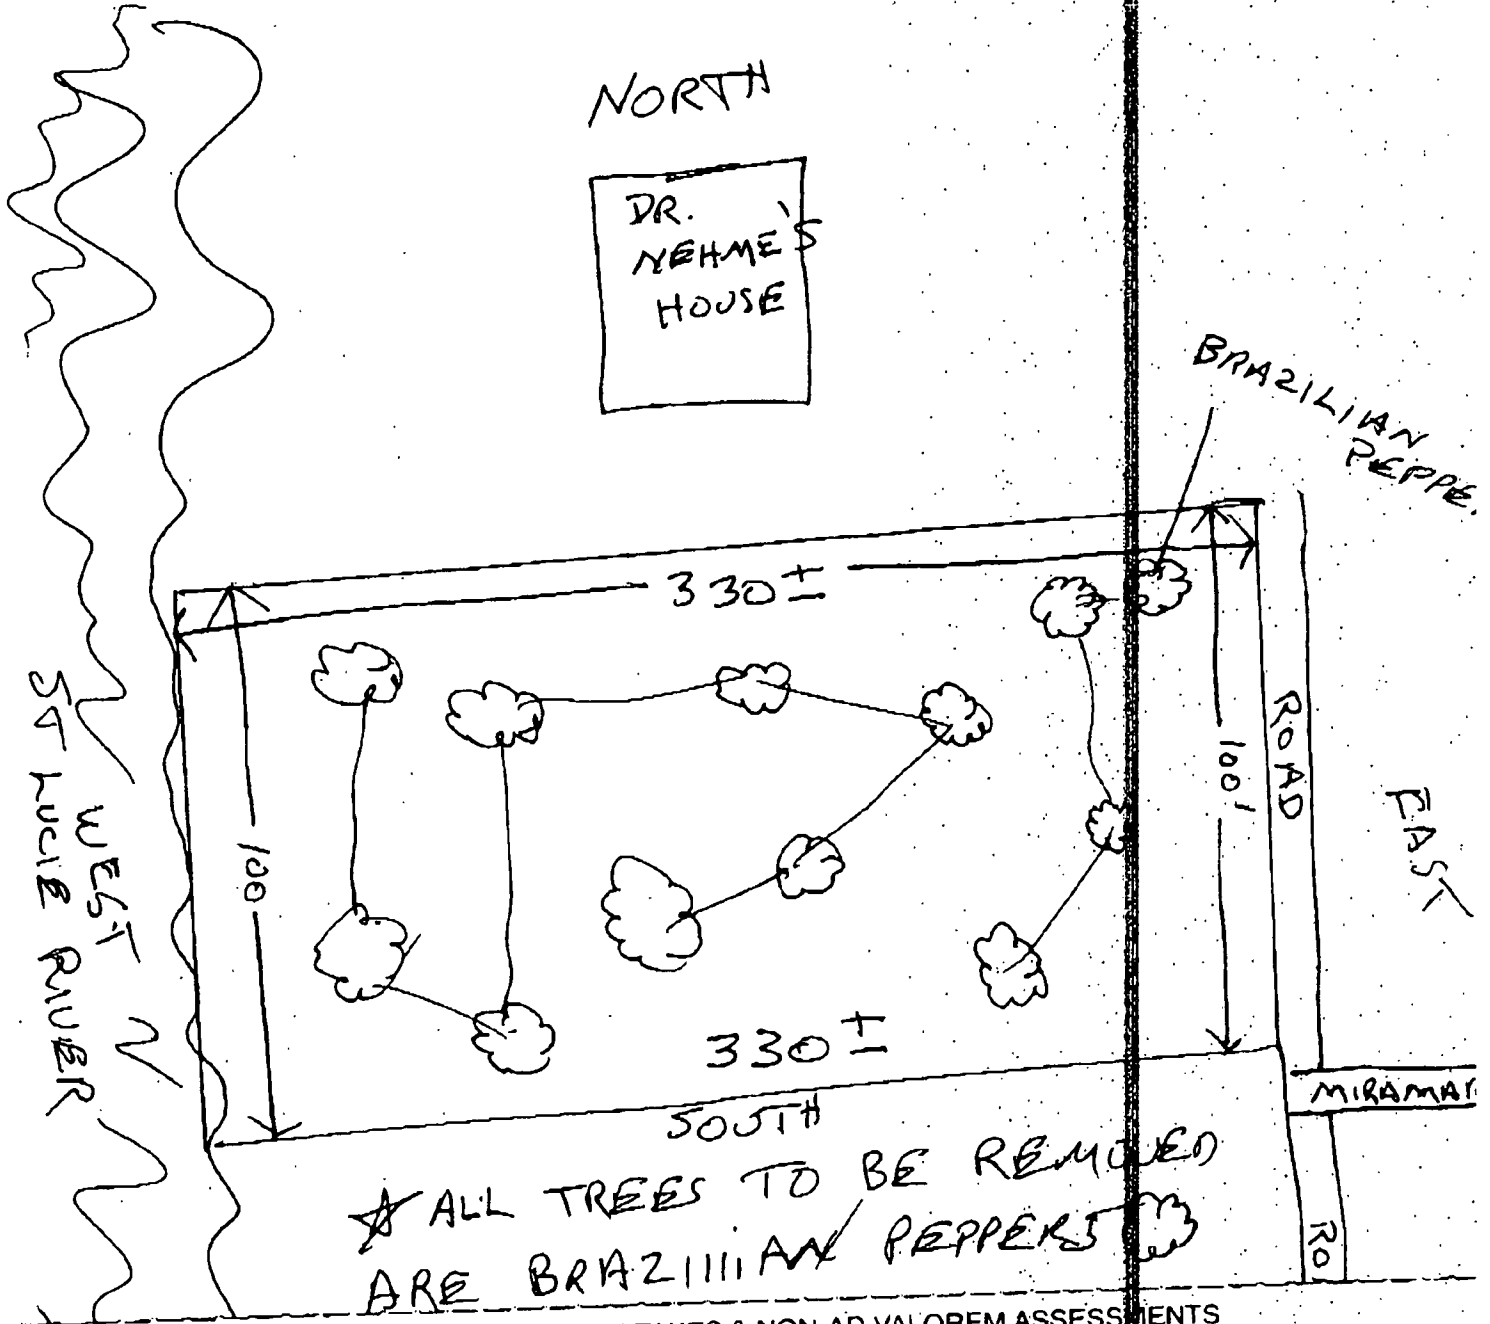 NORTH
DR.
NEHME'S
HOUSE
BRAZILIAN
PEPPE
330±
100
100'
ROAD
EAST
WEST
ST LUCIE RIVER
330±
SOUTH
MIRAMAR
☆ ALL TREES TO BE REMOVED
ARE BRAZILLIAN PEPPERS
RO
& NON-AD VALOREM ASSESSMENTS